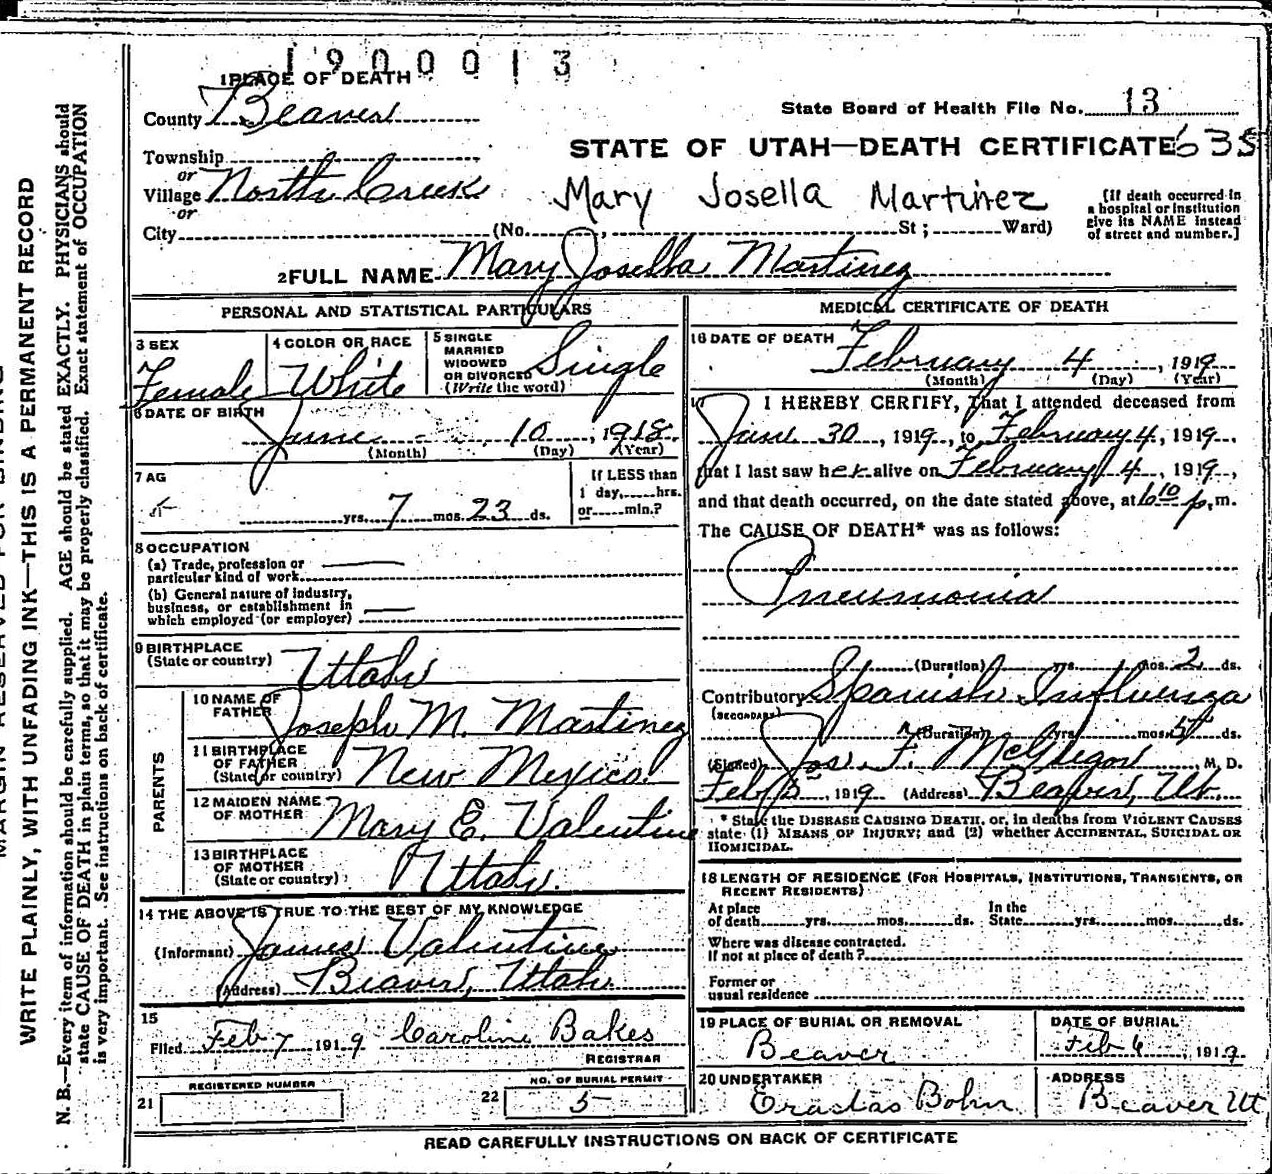 1900013
1 PLACE OF DEATH
County Beaver
State Board of Health File No. 13
Township
or
STATE OF UTAH—DEATH CERTIFICATE 635
Village North Creek
or
Mary Josella Martinez
[If death occurred in
a hospital or institution
give its NAME instead
of street and number.]
City (No. , St ; Ward)
2 FULL NAME Mary Josella Martinez
PERSONAL AND STATISTICAL PARTICULARS
3 SEX
Female
4 COLOR OR RACE
White
5 SINGLE
MARRIED
WIDOWED
OR DIVORCED
(Write the word)
Single
6 DATE OF BIRTH
June 10, 1918
(Month) (Day) (Year)
7 AG
yrs. 7 mos. 23 ds.
If LESS than
1 day, hrs.
or min.?
8 OCCUPATION
(a) Trade, profession or
particular kind of work
(b) General nature of industry,
business, or establishment in
which employed (or employer)
9 BIRTHPLACE
(State or country) Utah
PARENTS
10 NAME OF
FATHER Joseph M. Martinez
11 BIRTHPLACE
OF FATHER
(State or country) New Mexico
12 MAIDEN NAME
OF MOTHER Mary E. Valentine
13 BIRTHPLACE
OF MOTHER
(State or country) Utah
14 THE ABOVE IS TRUE TO THE BEST OF MY KNOWLEDGE
(Informant) James Valentine
(Address) Beaver, Utah
15
Filed Feb 7 1919 Caroline Bakes
REGISTRAR
REGISTERED NUMBER
21
NO. OF BURIAL PERMIT
22 5
MEDICAL CERTIFICATE OF DEATH
16 DATE OF DEATH
February 4, 1919
(Month) (Day) (Year)
17 I HEREBY CERTIFY, That I attended deceased from
Jan 30, 1919, to February 4, 1919,
that I last saw her alive on February 4, 1919,
and that death occurred, on the date stated above, at 6 10 p.m.
The CAUSE OF DEATH* was as follows:
Pneumonia
(Duration) yrs. mos. 2 ds.
Contributory Spanish Influenza
(SECONDARY)
(Duration) yrs. mos. ds.
(Signed) Jos. F. McGregor, M. D.
Feb 5, 1919 (Address) Beaver, Ut.
* State the DISEASE CAUSING DEATH, or, in deaths from VIOLENT CAUSES
state (1) MEANS OF INJURY; and (2) whether ACCIDENTAL, SUICIDAL OR
HOMICIDAL.
18 LENGTH OF RESIDENCE (FOR HOSPITALS, INSTITUTIONS, TRANSIENTS, OR
RECENT RESIDENTS)
At place
of death yrs. mos. ds.
In the
State yrs. mos. ds.
Where was disease contracted.
If not at place of death?
Former or
usual residence
19 PLACE OF BURIAL OR REMOVAL
Beaver
DATE OF BURIAL
Feb 6, 1919.
20 UNDERTAKER
Erastas Bohn
ADDRESS
Beaver Ut
READ CAREFULLY INSTRUCTIONS ON BACK OF CERTIFICATE
WRITE PLAINLY, WITH UNFADING INK—THIS IS A PERMANENT RECORD
N. B.—Every item of information should be carefully supplied. AGE should be stated EXACTLY. PHYSICIANS should
state CAUSE OF DEATH in plain terms, so that it may be properly classified. Exact statement of OCCUPATION
is very important. See instructions on back of certificate.